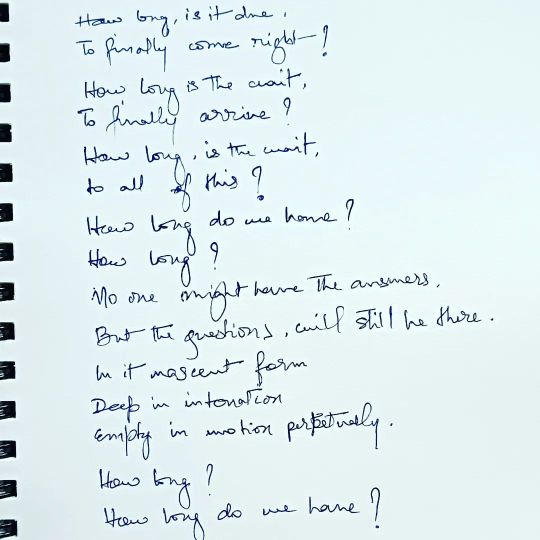 How long, is it due,
To finally come right?
How long is the wait,
To finally arrive?
How long, is the wait,
to all of this?
How long do we have?
How long?
No one might have the answers,
But the questions, will still be there.
In it nascent form
Deep in intonation
Empty in motion perpetually.
How long?
How long do we have?